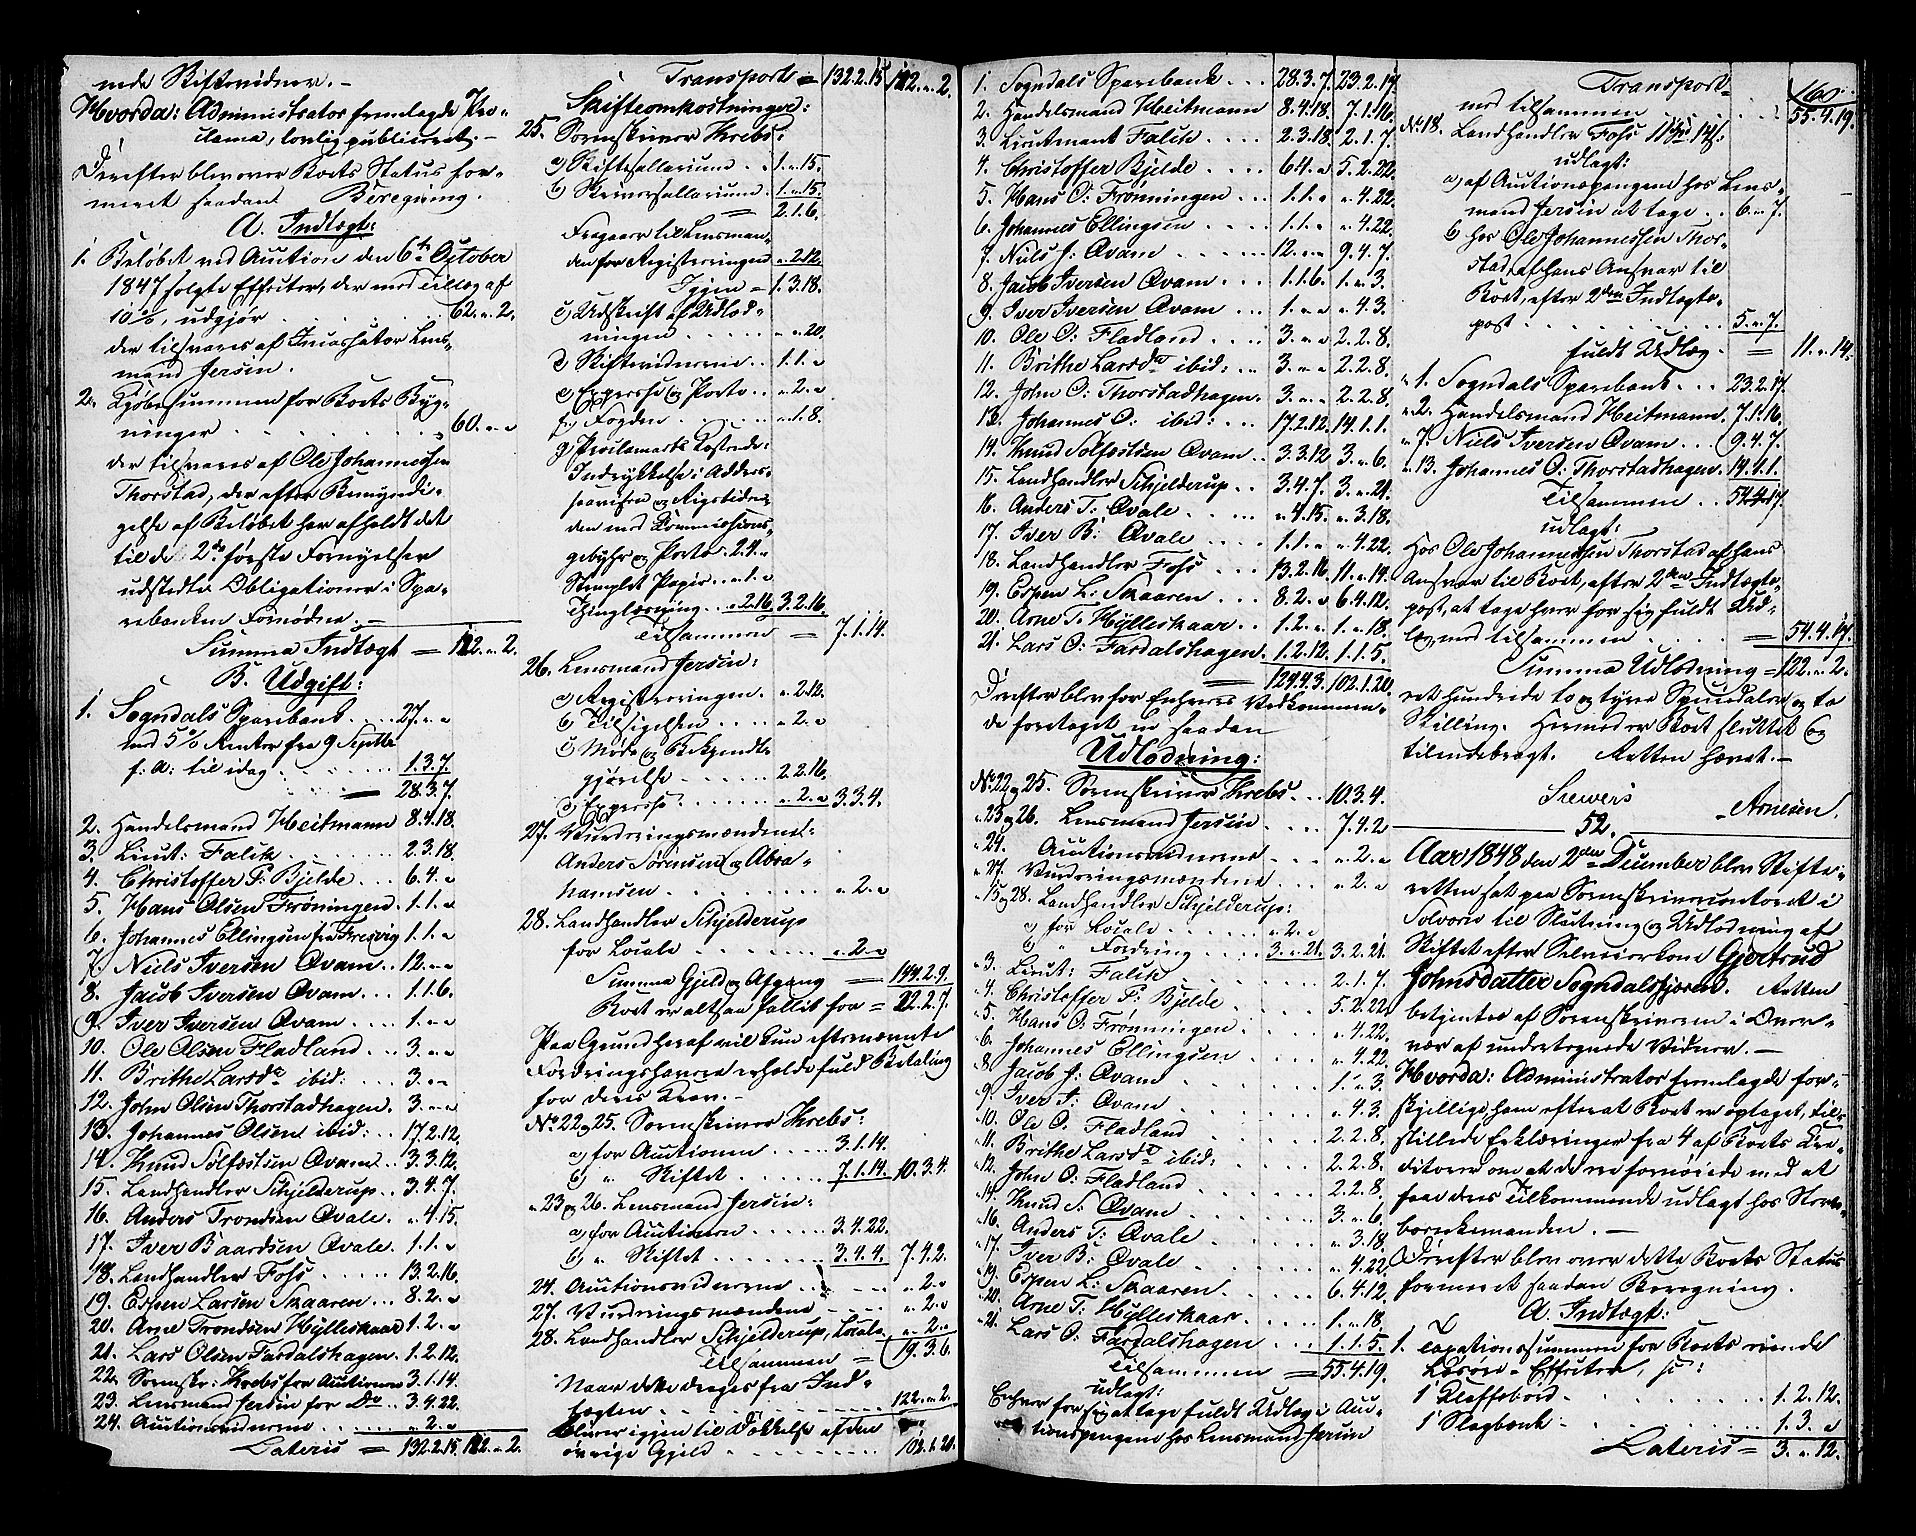 nede Skiftevidner. –
Hvorda: Administrator fremlagde Pro-
clama, lovlig publiceret. –
Derefter blev over Boets Status for-
meret saadan Beregning.
A. Indtægt:
1. Beløbet ved Auction den 6te October
1847 solgte Effecter, der med Tillæg af
10 %, udgjør . . . . 62. " 2.
der tilsvares af Incassator Lens-
mand Jersin.
2. Kjøbesummen for Boets Byg-
ninger . . . . 60. " "
der tilsvares af Ole Johannesen
Thorstad, der efter Bemyndi-
gelse af Beløbet har afholdt det
til de 2de første Fornyelser
udstedte Obligationer i Spa-
rebanken Fornødne. –
Summa Indtægt = 122. " 2.
B. Udgift:
1. Sogndals Sparebank . . . 27. " "
med 5 % Renter fra 9 Septbr
f: A: til idag . . . . 1.3.7.
28.3.7.
2. Handelsmand Heitmann 8.4.18.
3. Lieut: Falch . . . . 2.3.18.
4. Christoffer P: Bjelde . . . 6.4. "
5. Hans Olsen Frøningen . 1.1. "
6. Johannes Ellingsen fra Fresvig 1.1. "
7. Niels Iversen Qvam . . 12. " "
8. Jacob Iversen Qvam . . . 1.1.6.
9. Iver Iversen Qvam . . . . 1. " "
10. Ole Olsen Fladland . . . 3. " "
11. Brithe Larsdr ibid: . . . . 3. " "
12. John Olsen Thorstadhagen . 3. " "
13. Johannes Olsen ibid: . . 17.2.12.
14. Knud Sølfestsen Qvam . . 3.3.12.
15. Landhandler Schjelderup . . 3.4.7.
16. Anders Trondsen Qvale . " 4.15.
17. Iver Baardsen Qvale . 1.1. "
18. Landhandler Foss . . . . . 13.2.16.
19. Espen Larsen Skaaren . . . 8.2. "
20. Arne Trondsen Hylleskaar 1.2. "
21. Lars Olsen Fardalshagen . 1.2.12.
22. Sorenskr: Krebs for Auctionen 3.1.14.
23. Lensmand Jersin for Do . . 3.4.22.
24. Auctionsvidnerne . . . . . " 2. "
Lateris = 132.2.15. 122. " 2.
Transport = 132.2.15. 122. " 2.
Skifteomkostninger:
25. Sorenskriver Krebs:
a) Skiftesallarium . . 1. " 15.
b) Skriversallarium . 1. " 15.
2.1.6.
Fragaar til Lensman-
den for Registreringen " 2.12.
Igjen = 1.3.18.
c) Udskrift af Udlod-
ningen . . . . . " " 20.
d) Skiftevidnerne . . 1.1. "
e) Expresse og Porto . . " 2. "
f) Fogden . . . . . " 1.8.
g) Proclamaets Kostende:
Indrykkelse i Addres-
seavisen og Rigstiden-
den med Commissions-
gebyhr og Porto . 2.4. "
Stemplet Papir . . " 1. "
Thinglæsning . . " 2.16. 3.2.16.
Tilsammen = 7.1.14.
26. Lensmand Jersin:
a) Registreringen . . " 2.12.
b) Tilsigelsen . . . . " 2. "
c) Møde og Bekjendt-
gjørelse . . . . . 2.2.16.
d) Expresse . . . . . " 2. " 3.3.4.
27. Vurderingsmændene:
Anders Sørensen og Abra-
hamsen . . . . . . " 2. "
28. Landhandler Schjelderup
for Locale . . . . . " 2. "
Summa Gjeld og Afgang = 144.2.9.
Boet er altsaa fallit for = 22.2.7.
Paa Grund heraf vil kun efternævnte
Fordringshavere erholde fuld Betaling
for deres Krav. –
No 22 og 25. Sorenskriver Krebs:
a) for Auctionen . . . . 3.1.14.
b) " Skiftet . . . . 7.1.14. 10.3.4.
" 23 og 26. Lensmand Jersin:
a) for Auctionen . . . . 3.4.22.
b) " Skiftet . . . . 3.3.4. 7.4.2.
24. Auctionsvidnerne . . . . " 2. "
27. Vurderingsmændene . . . . " 2. "
28. Landhandler Schjelderup, Locale " 2. "
Tilsammen = 19.3.6.
Naar dette drages fra Ind-
tægten . . . . . . 122. " 2.
bliver igjen til Dækkelse af den
øvrige Gjeld . . . . . . 102.1.20.
1. Sogndals Sparebank . . . 28.3.7. 23.2.17.
2. Handelsmand Heitmann 8.4.18. 7.1.16.
3. Lieutenant Falch . . . . 2.3.18. 2.1.7.
4. Christoffer Bjelde . . . . 6.4. " 5.2.22.
5. Hans O: Frønningen . . . 1.1. " " 4.22.
6. Johannes Ellingsen . . . . 1.1. " " 4.22.
7. Niels J: Qvam . . . . . 12. " " 9.4.7.
8. Jacob Iversen Qvam . . . 1.1.6. 1. " 3.
9. Iver Iversen Qvam . . . . 1. " " " 4.3.
10. Ole O: Fladland . . . . 3. " " 2.2.8.
11. Brithe Larsdr ibid: . . . 3. " " 2.2.8.
12. John O: Thorstadhagen . 3. " " 2.2.8.
13. Johannes O: ibid: . . . 17.2.12. 14.1.1.
14. Knud Solfestsen Qvam . . 3.3.12. 3. " 6.
15. Landhandler Schjelderup . . 3.4.7. 3. " 21.
16. Anders T: Qvale . . . . . " 4.15. " 3.18.
17. Iver B: Qvale . . . . . 1.1. " " 4.22.
18. Landhandler Foss . . . 13.2.16. 11. " 14.
19. Espen L: Skaaren . . . 8.2. " 6.4.12.
20. Arne T: Hylleskaar . . . 1.2. " 1. " 18.
21. Lars O: Fardalshagen . 1.2.12. 1.1.5.
124.4.3. 102.1.20.
Derefter blev for Enhvers Vedkommen-
de foretaget en saadan
Udlodning:
No 22 og 25. Sorenskriver Krebs . . . 10.3.4.
" 23 og 26. Lensmand Jersin . . . . 7.4.2.
" 24. Auctionsvidnerne . . . . " 2. "
" 27. Vurderingsmændene . . . . " 2. "
" 15 og 28. Landhandler Schjelderup:
a) for Locale . . . . . " 2. "
b) " Fordring . . . . 3. " 21. 3.2.21.
" 3. Lieut: Falch . . . . . 2.1.7.
" 4. Christoffer P: Bjelde . . . . 5.2.22.
" 5. Hans O: Frønningen . . . . " 4.22.
" 6. Johannes Ellingsen . . . . " 4.22.
" 8. Jacob J: Qvam . . . . . 1. " 3.
" 9. Iver I: Qvam . . . . . " 4.3.
" 10. Ole O: Fladland . . . . . 2.2.8.
" 11. Brithe Larsdr ibid: . . . . . 2.2.8.
" 12. John O: Fladland . . . . . 2.2.8.
" 14. Knud S: Qvam . . . . . 3. " 6.
" 16. Anders T: Qvale . . . . . " 3.18.
" 17. Iver B: Qvale . . . . . " 4.22.
" 19. Espen L: Skaaren . . . . . 6.4.12.
" 20. Arne T: Hylleskaar . . . . . 1. " 18.
" 21. Lars O: Fardalshagen . . . 1.1.5.
Tilsammen = 55.4.19.
udlagt:
Enhver for sig at tage fuldt Udlæg i Auc-
tionspengene hos Lensmand Jersin
160.
Transport
med tilsammen . . . . 55.4.19.
No 18. Landhandler Foss 11 Spd 14 s.
udlagt:
a) af Auctionspengene hos Lens-
mand Jersin at tage . . 6. " 7.
b) hos Ole Johannessen Thor-
stad, af hans Ansvar til
Boet, efter 2den Indtægts-
post . . . . . . 5. " 7.
fuldt Udlæg . = 11. " 14.
" 1. Sogndals Sparebank . . . 23.2.17.
" 2. Handelsmand Heitmann . 7.1.16.
" 7. Niels Iversen Qvam . . . 9.4.7.
" 13. Johannes O: Thorstadhagen . 14.1.1.
Tilsammen . . 54.4.17.
udlagt:
Hos Ole Johannessen Thorstad af hans
Ansvar til Boet, efter 2den Indtægts-
post, at tage hver for sig fuldt Ud-
læg med tilsammen . . . . = 54.4.17.
Summa Udlodning = 122. " 2.
eet hundrede to og tyve Speciedaler og to
Skilling. Hermed er Boet sluttet og
tilendebragt. Retten hævet. –
Siewers Arnesen.
52.
Aar 1848 den 2den December blev Skifte-
retten sat paa Sorenskrivercontoret i
Solvorn til Slutning og Udlodning af
Skiftet efter Selveierkone Gjertrud
Johnsdatter Sogndalsfjæren. Retten
betjentes af Sorenskriveren i Over-
vær af undertegnede Vidner. –
Hvorda: Administrator fremlagde for-
skjellige, ham efterat Boet er optaget, til-
stillede Erklæringer fra 4 af Boets Cre-
ditorer om at de ere fornøiede med at
faae deres Tilkommende udlagt hos Sterv-
boenkemanden. –
Derefter blev over dette Boets Status
formeret saadan Beregning.
A. Indtægt:
1. Taxationssummen for Boets rørende
Løsøre-Effecter, ::
1 Klaffebord . . . . . . 1.2.12.
1 Slagbænk . . . . . . 1.3. "
Lateris = 3. " 12.